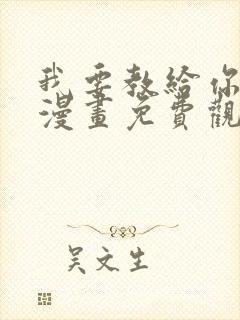 我要教給你
漫畫免費觀
吳文生